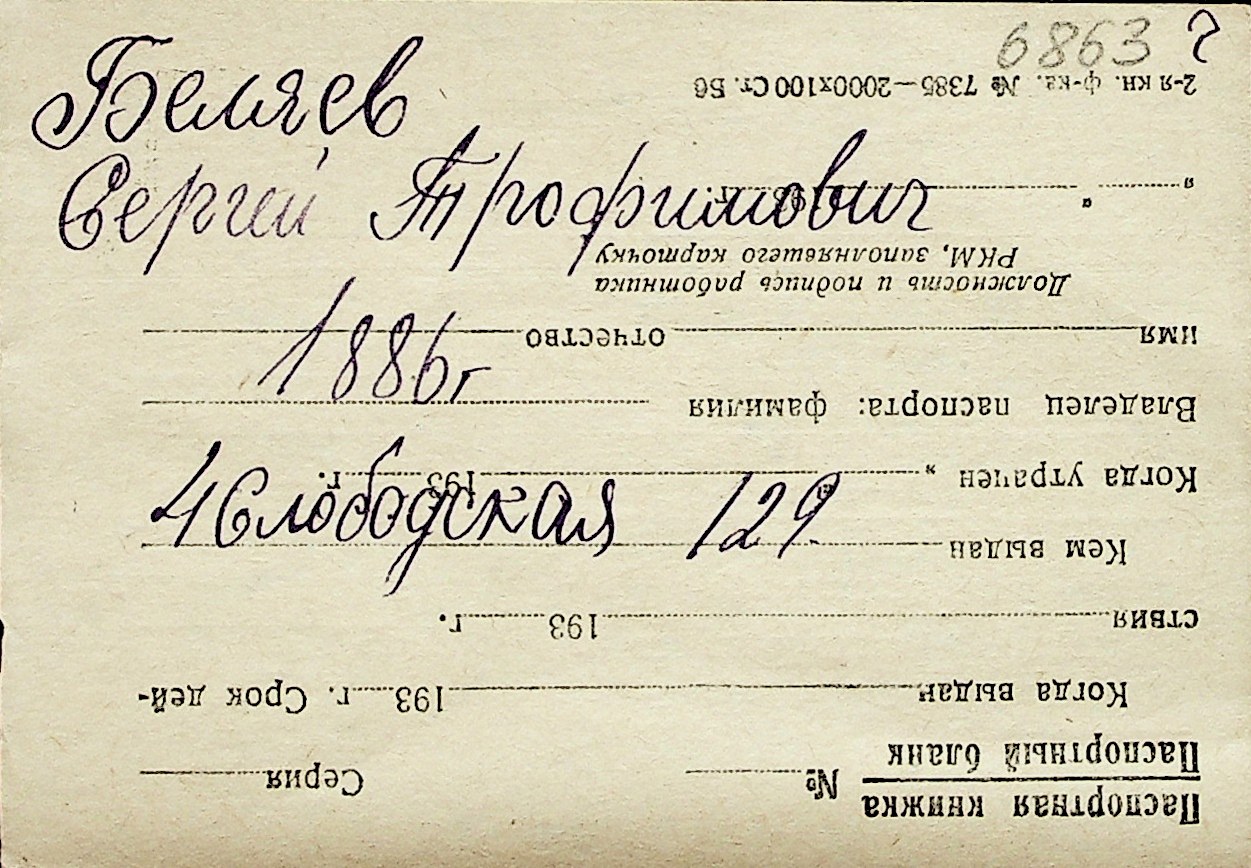 6863 2
Беляев
Сергей Трофимович
1886 г
4 Слободская 129
Паспортная книжка
Паспортный бланк
№ Серия
Когда выдан 193 г. Срок дей-
ствия 193 г.
Кем выдан
Когда утрачен „ “ 193 г.
Владелец паспорта: фамилия
имя отчество
Должность и подпись работника
РКМ, заполнявшего карточку
„ “ 193 г.
2-я кн. ф-ка. № 7385—2000х100 Ст. Б6